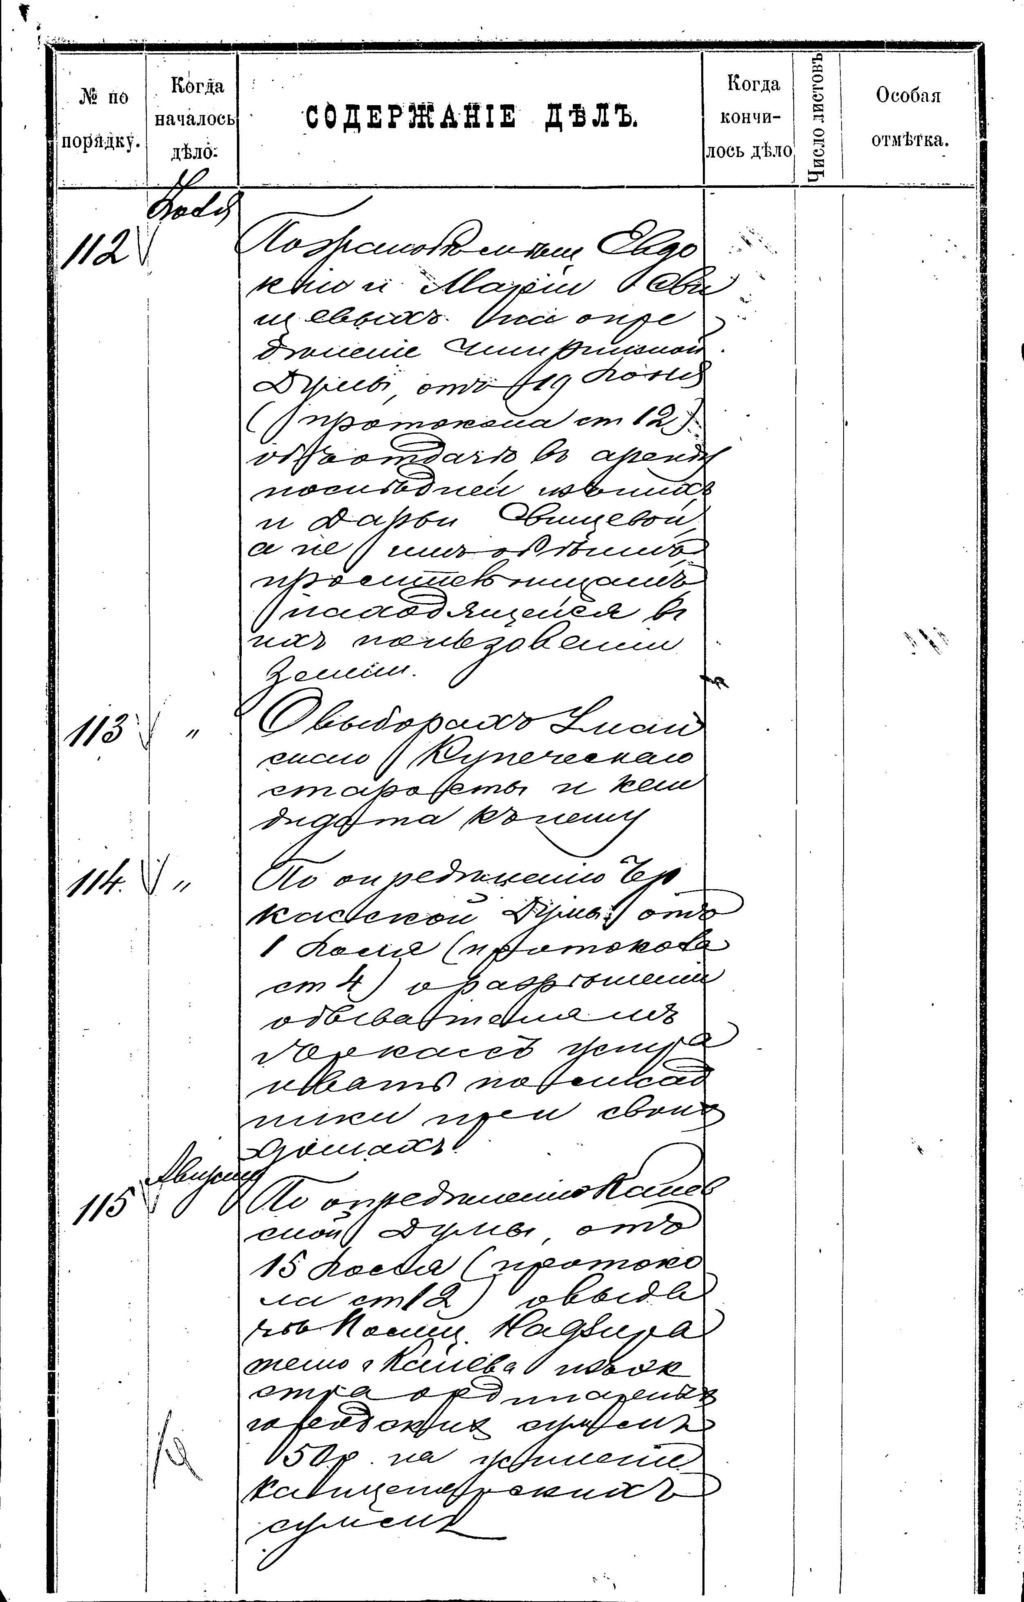 № по порядку.
Когда началось дѣло.
СОДЕРЖАНІЕ ДѢЛЪ.
Когда кончилось дѣло
Число листовъ
Особая отмѣтка.
Іюля
112
Евдо
кіи и Маріи Сви
щевыхъ на опре
дѣленіе
Думы, отъ 19 Іюня
(протокола ст 12)
объ отдачѣ въ аренду
последней
и Дарьи Свищевой,
а не имъ
просительницамъ
находящейся въ
ихъ пользованіи
земли.
113 "
О выборахъ
скаго Купеческаго
старосты и кан
дидата къ нему
114. "
По опредѣленію Чер
касской Думы отъ
1 Іюля (протокола
ст 4) о разрѣшеніи
обывателямъ
Черкассъ устра
ивать палисад
ники при своихъ
домахъ
Августа
115
По опредѣленію Канев
ской Думы, отъ
15 Іюля (протоко
ла ст 12) о выда
чѣ Полиц. Надзира
телю г Канева изъ эк
стра ординарныхъ
городскихъ суммъ
50 р. на усиленіе
канцелярскихъ
суммъ